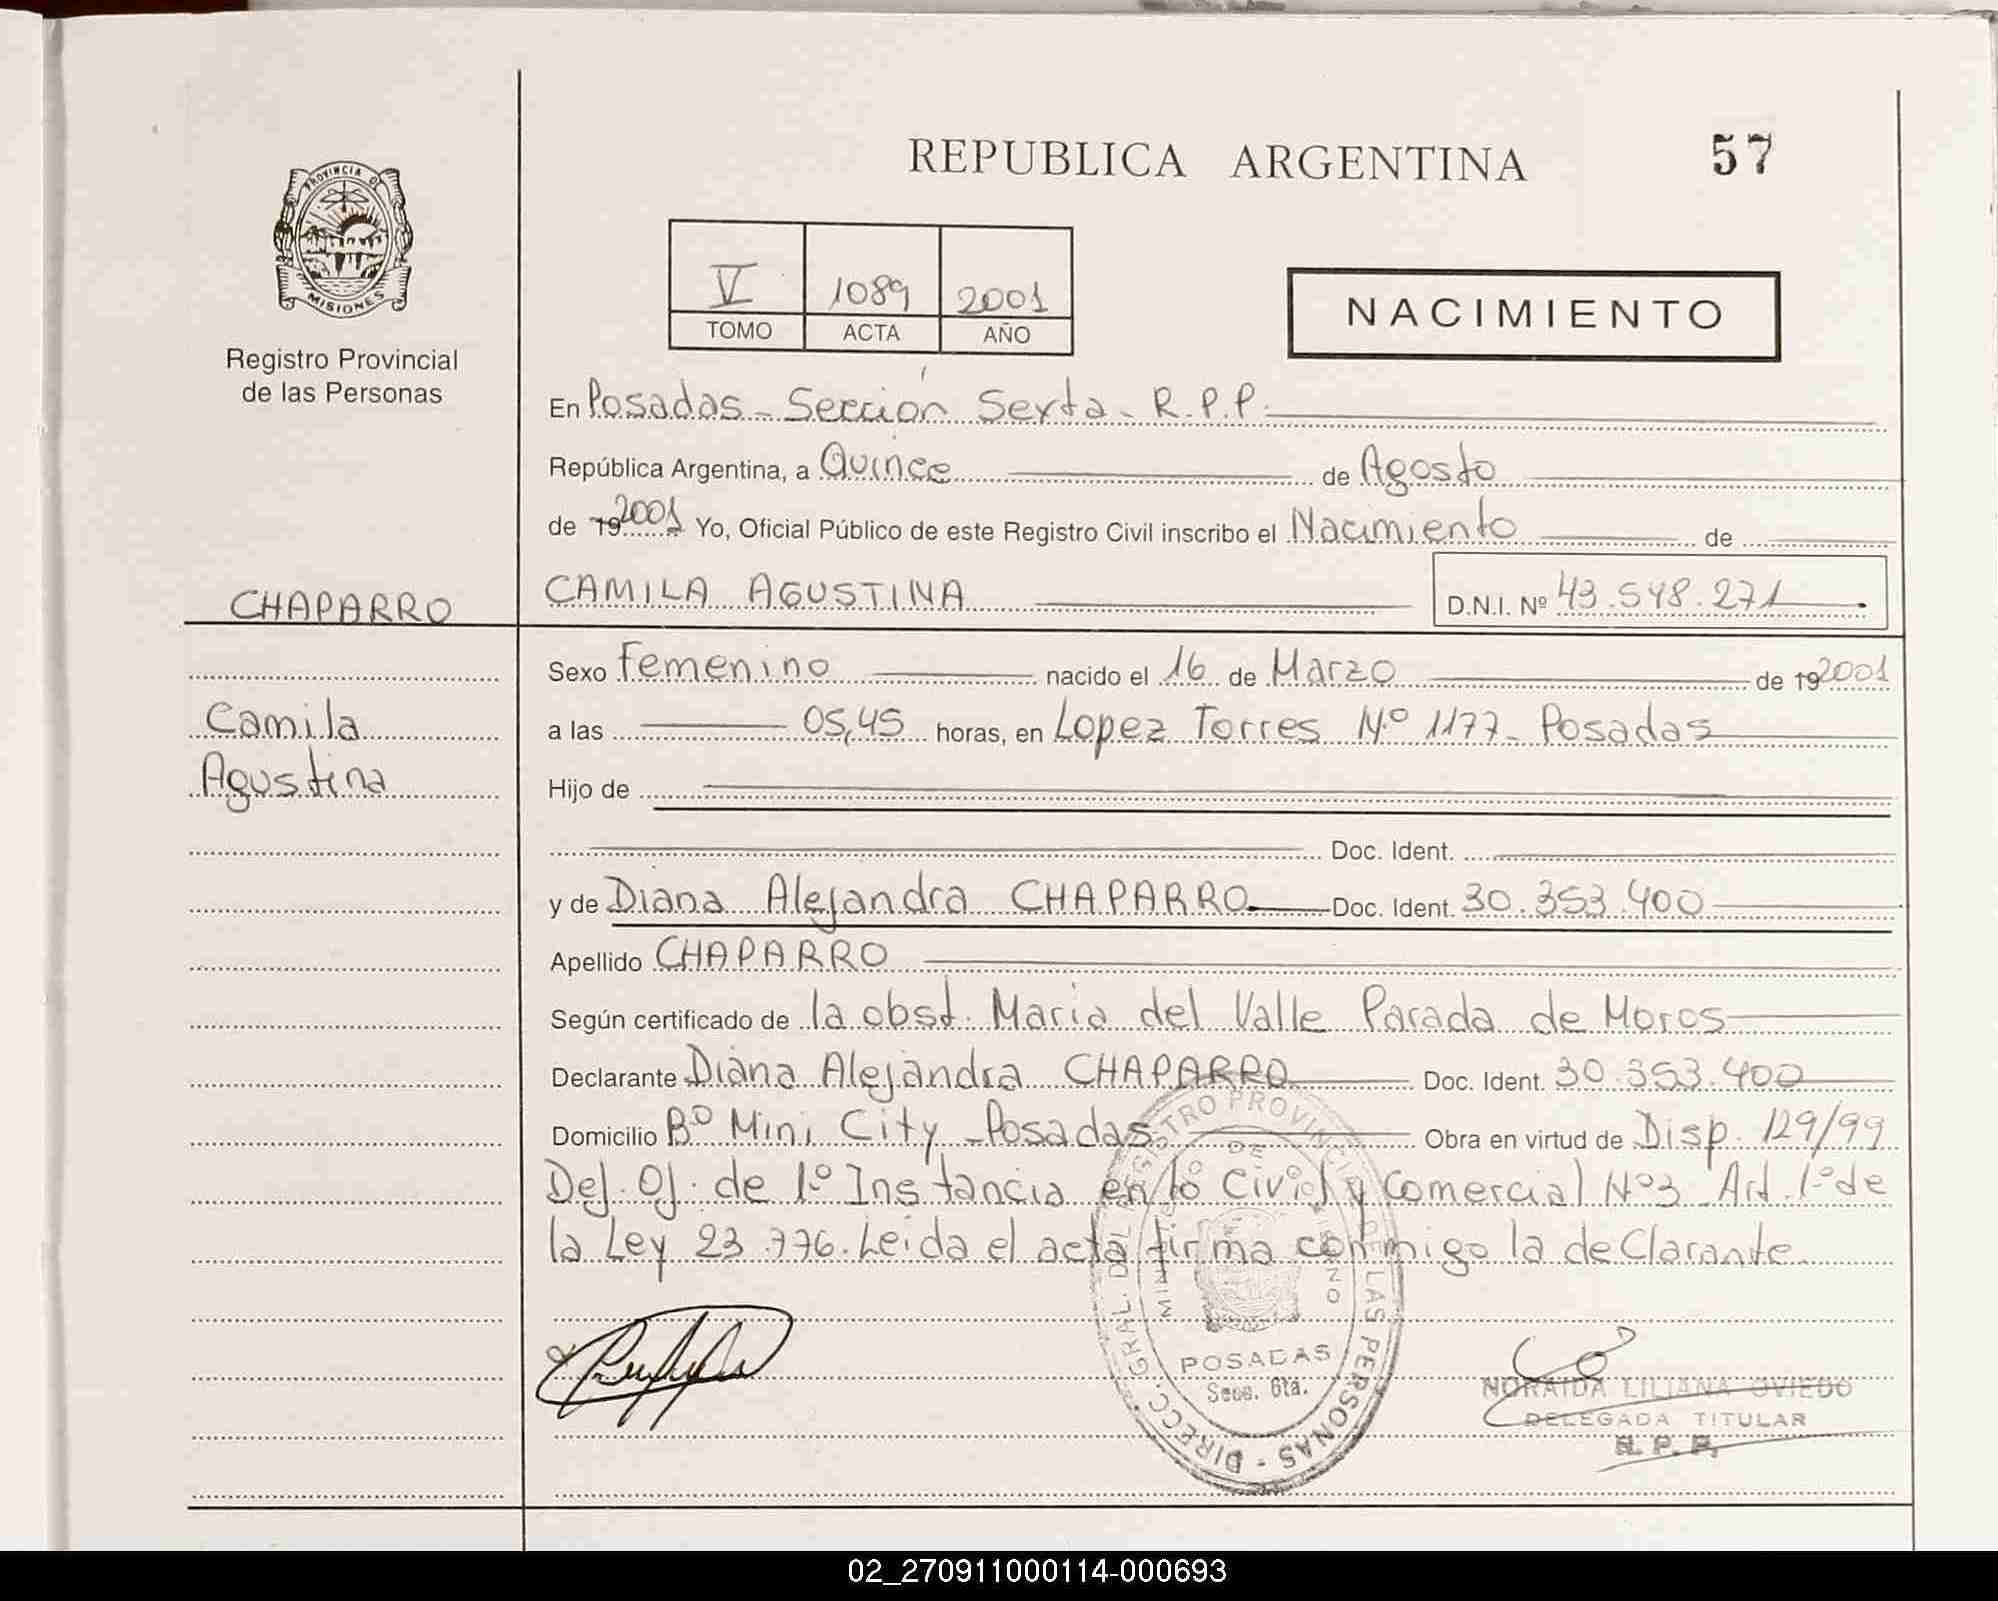 REPUBLICA ARGENTINA
57
PROVINCIA DE
MISIONES
Registro Provincial
de las Personas
V 1089 2001
TOMO ACTA AÑO
NACIMIENTO
En Posadas - Sección Sexta - R.P.P.
República Argentina, a Quince de Agosto
de 19 2001 Yo, Oficial Público de este Registro Civil inscribo el Nacimiento de
CHAPARRO
CAMILA AGUSTINA D.N.I. Nº 43.548.271
Sexo Femenino nacido el 16 de Marzo de 19 2001
Camila
a las 05,45 horas, en Lopez Torres Nº 1177 - Posadas
Agustina
Hijo de
Doc. Ident.
y de Diana Alejandra CHAPARRO Doc. Ident. 30.353.400
Apellido CHAPARRO
Según certificado de la obst. Maria del Valle Parada de Moros
Declarante Diana Alejandra CHAPARRO Doc. Ident. 30.353.400
Domicilio Bº Mini City - Posadas Obra en virtud de Disp. 129/99
Def. Of. de 1º Instancia en lo Civil y Comercial Nº3 - Art. 1º de
la Ley 23.776. Leida el acta firma conmigo la declarante.
DIRECC. GRAL. DEL REGISTRO PROVINCIAL DE LAS PERSONAS
POSADAS
Secc. 6ta.
NORAIDA LILIANA OVIEDO
DELEGADA TITULAR
R. P. P.
02_270911000114-000693